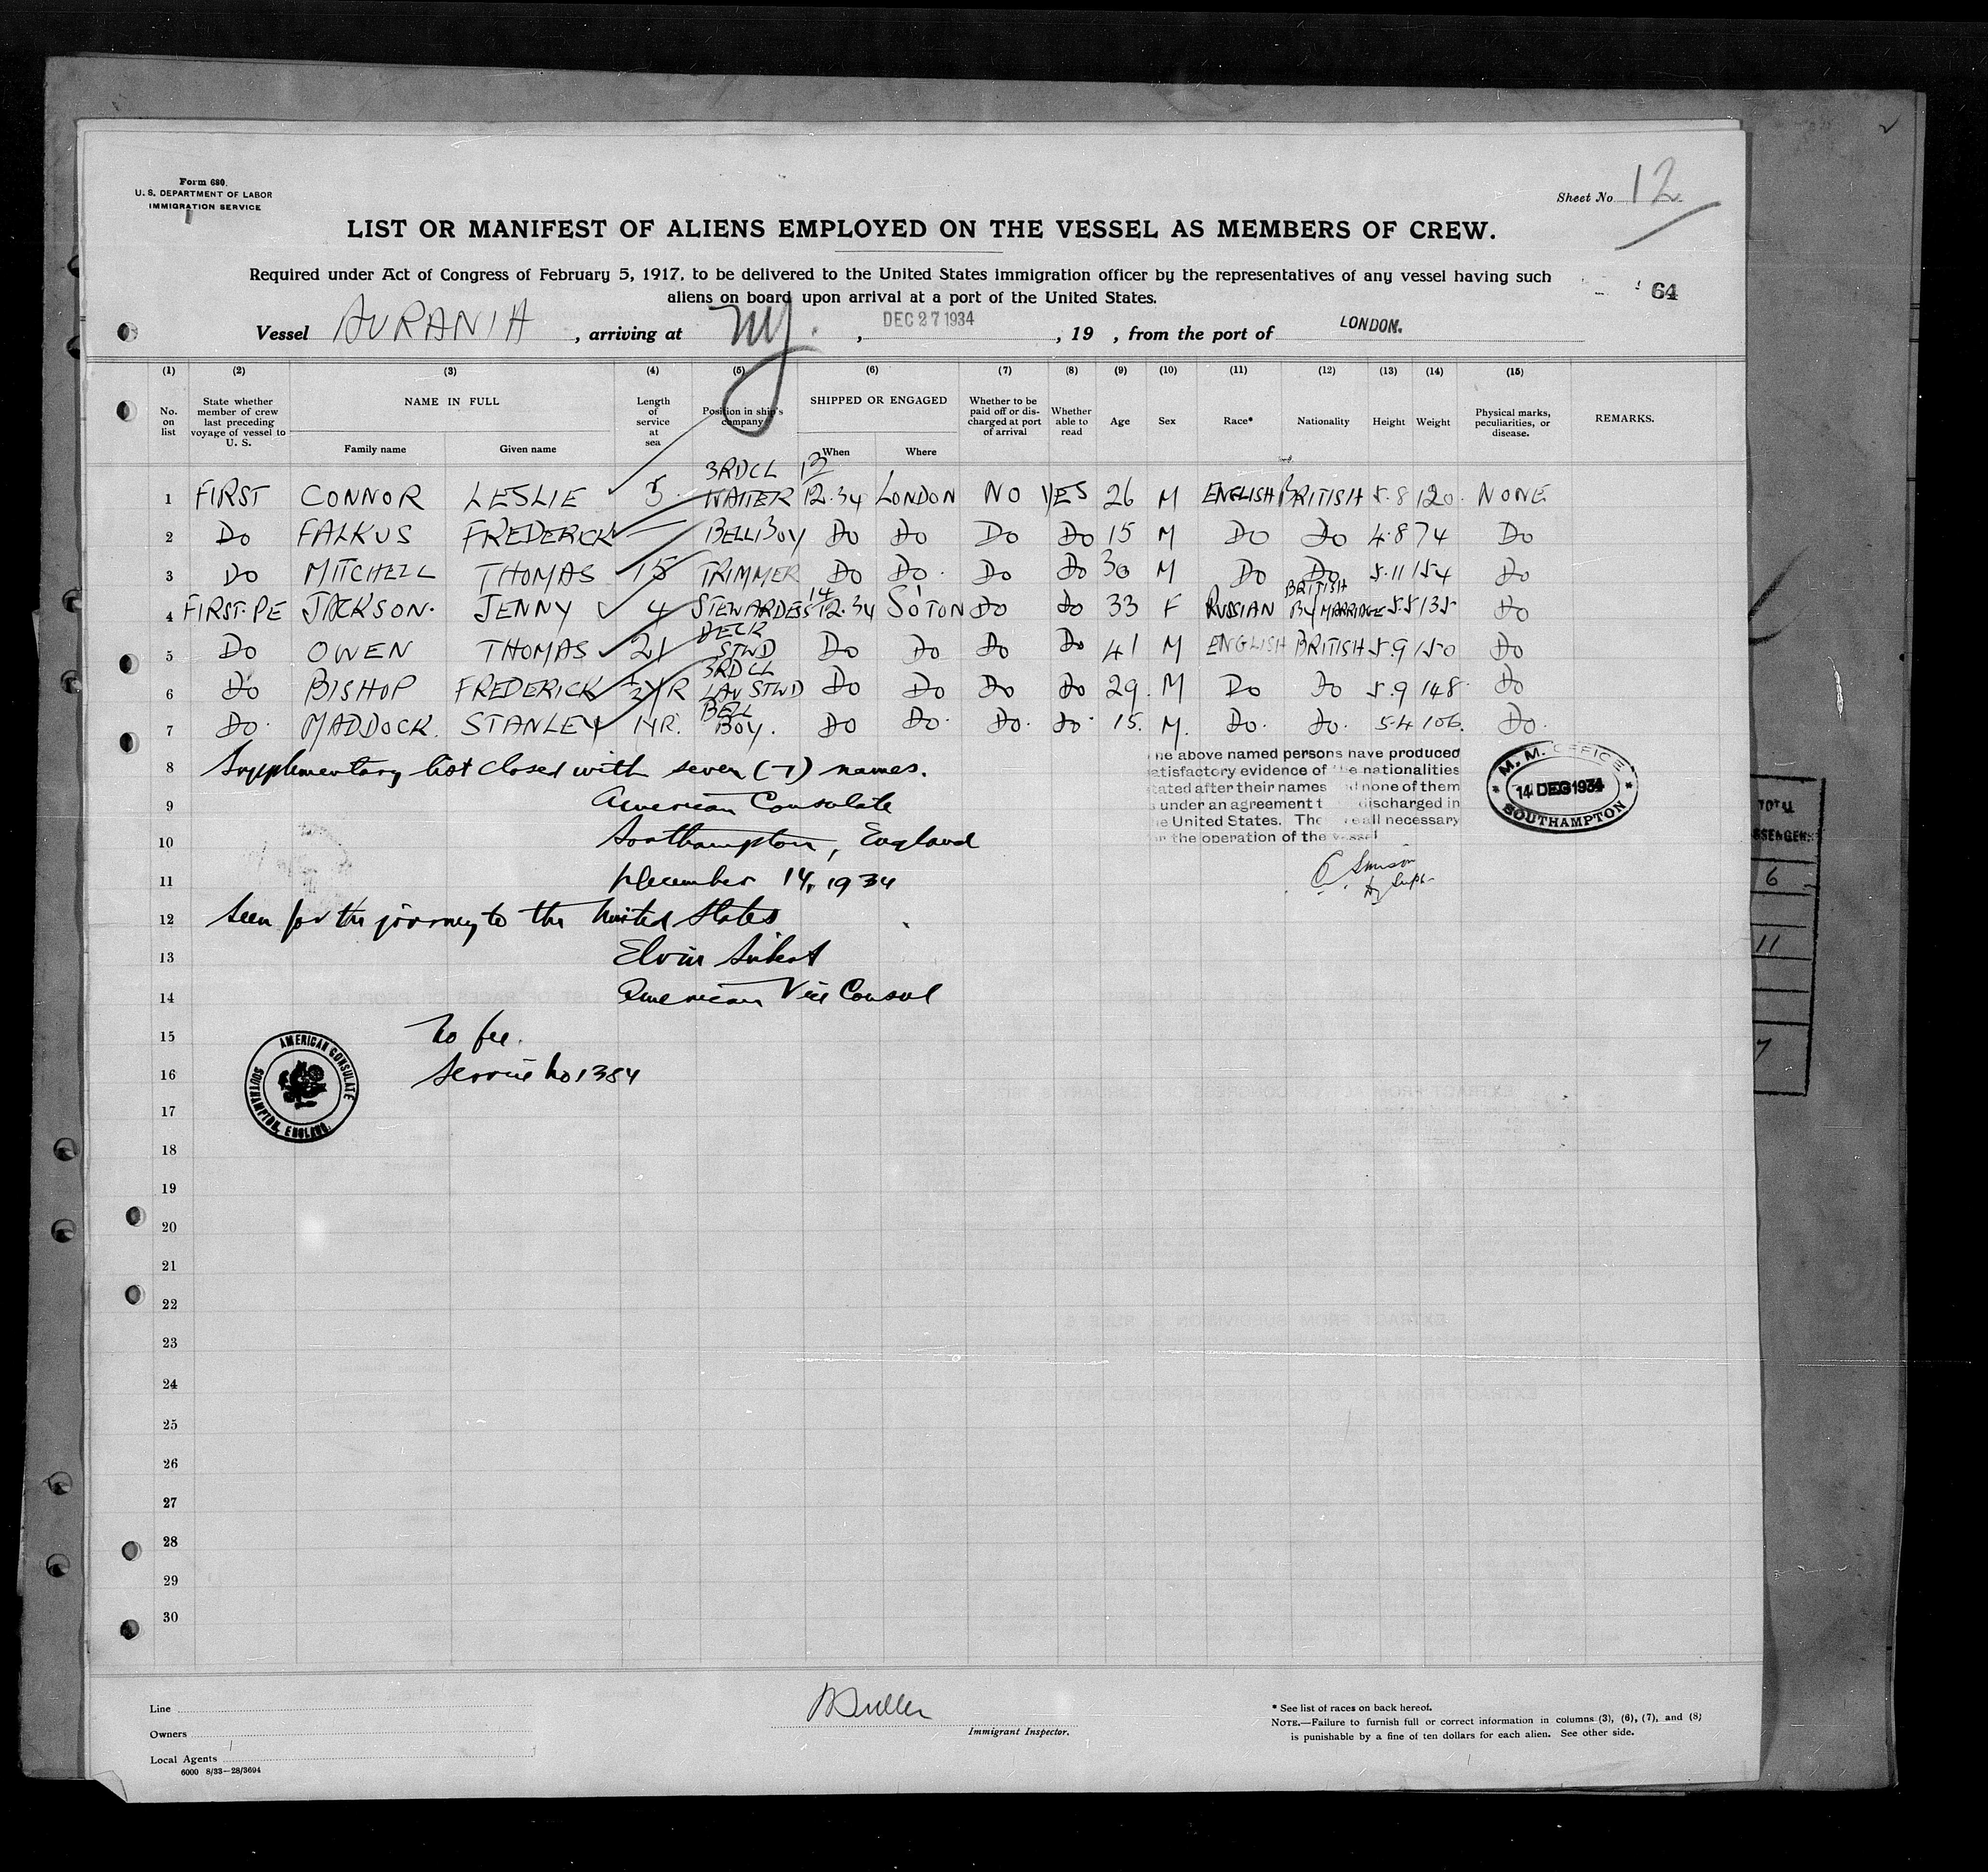 Form 680.
U. S. DEPARTMENT OF LABOR
IMMIGRATION SERVICE
Sheet No. 12
LIST OR MANIFEST OF ALIENS EMPLOYED ON THE VESSEL AS MEMBERS OF CREW.
Required under Act of Congress of February 5, 1917, to be delivered to the United States immigration officer by the representatives of any vessel having such
aliens on board upon arrival at a port of the United States.
64
Vessel AURANIA, arriving at NY., DEC 27 1934, 19 , from the port of LONDON.
(1) (2) (3) (4) (5) (6) (7) (8) (9) (10) (11) (12) (13) (14) (15)
No. on list
State whether member of crew last preceding voyage of vessel to U. S.
NAME IN FULL
Family name
Given name
Length of service at sea
Position in ship's company
SHIPPED OR ENGAGED
When
Where
Whether to be paid off or discharged at port of arrival
Whether able to read
Age
Sex
Race*
Nationality
Height
Weight
Physical marks, peculiarities, or disease.
REMARKS.
1 FIRST CONNOR LESLIE 5 3RDCL WAITER 13 12.34 LONDON NO YES 26 M ENGLISH BRITISH 5.8 120. NONE
2 DO FALKUS FREDERICK — BELLBOY DO DO DO DO 15 M DO DO 4.8 74 DO
3 DO MITCHELL THOMAS 15 TRIMMER DO DO. DO DO 30 M DO DO 5.11 154 DO
4 FIRST.PE JACKSON. JENNY 4 STEWARDESS 14 12.34 SO'TON DO DO 33 F RUSSIAN BRITISH BY MARRIAGE 5.5 135 DO
5 DO OWEN THOMAS 21 DECK STWD DO DO DO DO 41 M ENGLISH BRITISH 5.9 150 DO
6 DO BISHOP FREDERICK YR 3RDCL LAV STWD DO DO DO DO 29. M DO DO 5.9 148. DO
7 DO. MADDOCK. STANLEY 1YR. BELL BOY. DO DO. DO. DO. 15. M. DO. DO. 5.4 106. DO.
8 Supplementary list closed with seven (-7) names.
9 American Consulate
10 Southampton, England
11 December 14, 1934
12 Seen for the journey to the United States
13 Elvin Seibert
14 American Vice Consul
15 No fee.
16 Service No 1384
17
18
19
20
21
22
23
24
25
26
27
28
29
30
he above named persons have produced
atisfactory evidence of the nationalities
tated after their names none of them
under an agreement t discharged in
e United States. The all necessary
r the operation of the vessel
M. M. OFFICE
14 DEC 1934
SOUTHAMPTON
AMERICAN CONSULATE
SOUTHAMPTON, ENGLAND.
TOTAL
6
11
7
Line
Owners
Local Agents
6000 8/33—28/3694
Immigrant Inspector.
* See list of races on back hereof.
NOTE.—Failure to furnish full or correct information in columns (3), (6), (7), and (8)
is punishable by a fine of ten dollars for each alien. See other side.